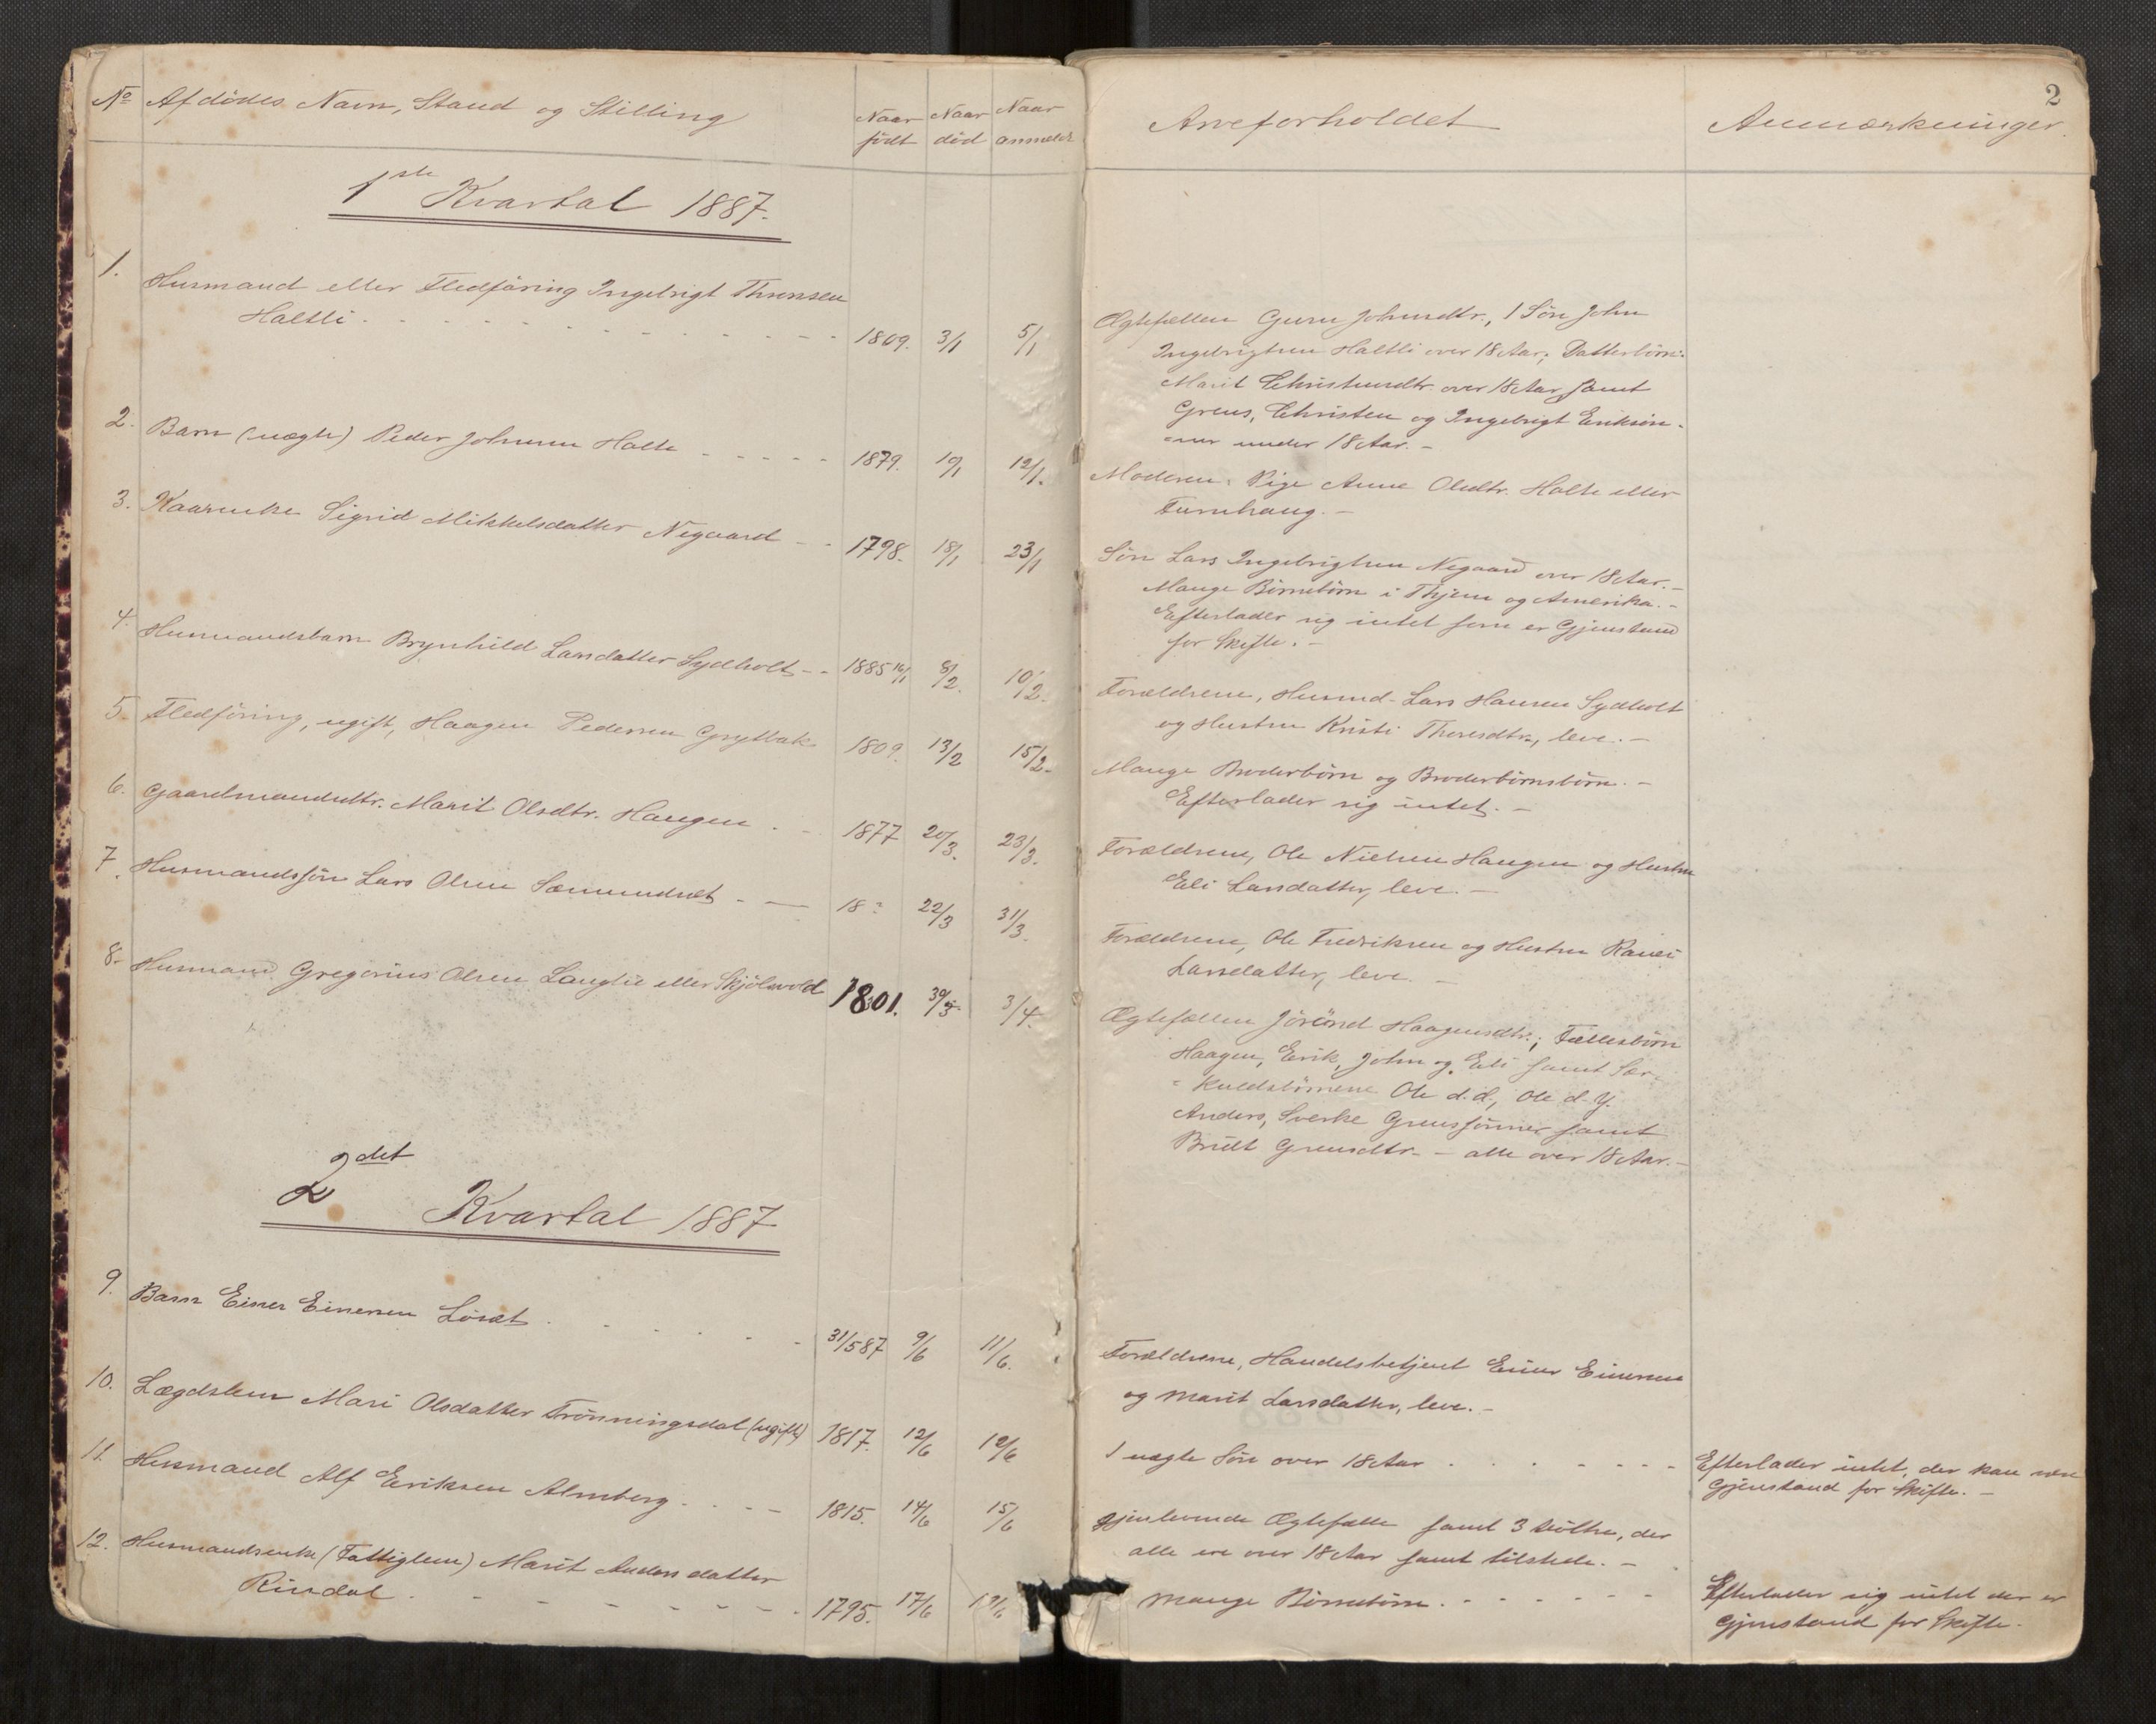 No Afdödes Navn, Stand og Stilling
Naar födt
Naar död
Naar anmeldt
1ste Kvartal 1887.
1. Husmand eller Flédföring Ingebrigt Thronsen
Haltli 1809. 3/1 5/1
2. Barn (uægte) Peder Johnsen Holte 1879. 10/1 12/1.
3. Kaarenke Sigrid Mikkelsdatter Negaard 1798. 18/1 23/1
4. Husmandsbarn Brynhild Larsdatter Sydholt 1885 16/1 8/2. 10/2.
5. Flédföring, ugift, Haagen Pedersen Grytbak 1809. 13/2 15/2.
6. Gaardmandsdtr. Marit Olsdtr. Haugen 1877 20/3. 23/3.
7. Husmandssön Lars Olsen Sæmundset 18 22/3 31/3.
8. Husmand Gregorius Olsen Langlie eller Skjölsvold 1801. 30/3 3/4.
2det Kvartal 1887
9. Barn Einer Einersen Löset 31/5 87 9/6 11/6.
10. Lægdslem Mari Olsdatter Trönningsdal (ugift) 1817. 12/6 12/6
11. Husmand Alf Eriksen Almberg 1815. 14/6 15/6
12. Husmandsenke (Fattiglem) Marit Andersdatter
Rindal 1795. 17/6
2
Arveforholdet
Anmærkninger.
Ægtefællen Guru Johnsdtr., 1 Sön John
Ingebrigtsen Haltli over 18 Aar; Datterbörn:
Marit Christensdtr. over 18 Aar samt
Grens, Christen og Ingebrigt Eriksön-
ner under 18 Aar. -
Moderen: Pige Anne Olsdtr. Holte eller
Furuhaug. -
Sön Lars Ingebrigtsen Negaard over 18 Aar. -
Mange Börnebörn i Thjem og Amerika. -
Efterlader sig intet som er Gjenstand
for Skifte. -
Forældrene, Husmd. Lars Hansen Sydholt
og Hustru Kristi Thoresdtr., leve. -
Mange Broderbörn og Broderbörnsbörn. -
Efterlader sig intet. -
Forældrene, Ole Nielsen Haugen og Hustru
Eli Larsdatter, leve. -
Forældrene, Ole Fredriksen og Hustru Ranei
Larsdatter, leve. -
Ægtefællen Jörönd Haagensdtr.; Fællesbörn
Haagen, Erik, John og Eli samt Sær-
kuldsbörnene Ole d. æ., Ole d. y.
Anders, Sverke Grenssönner samt
Brult Grensdtr. - alle over 18 Aar. -
Forældrene, Handelsbetjent Einer Einersen
og Marit Larsdatter, leve. -
1 uægte Sön over 18 Aar
Efterlader intet, der kan være
Gjenstand for Skifte. -
Gjenlevende Ægtefælle samt 3 Döttre, der
alle ere over 18 Aar samt tilstede. -
Mange Börnebörn.
Efterlader sig intet der er
Gjenstand for Skifte.